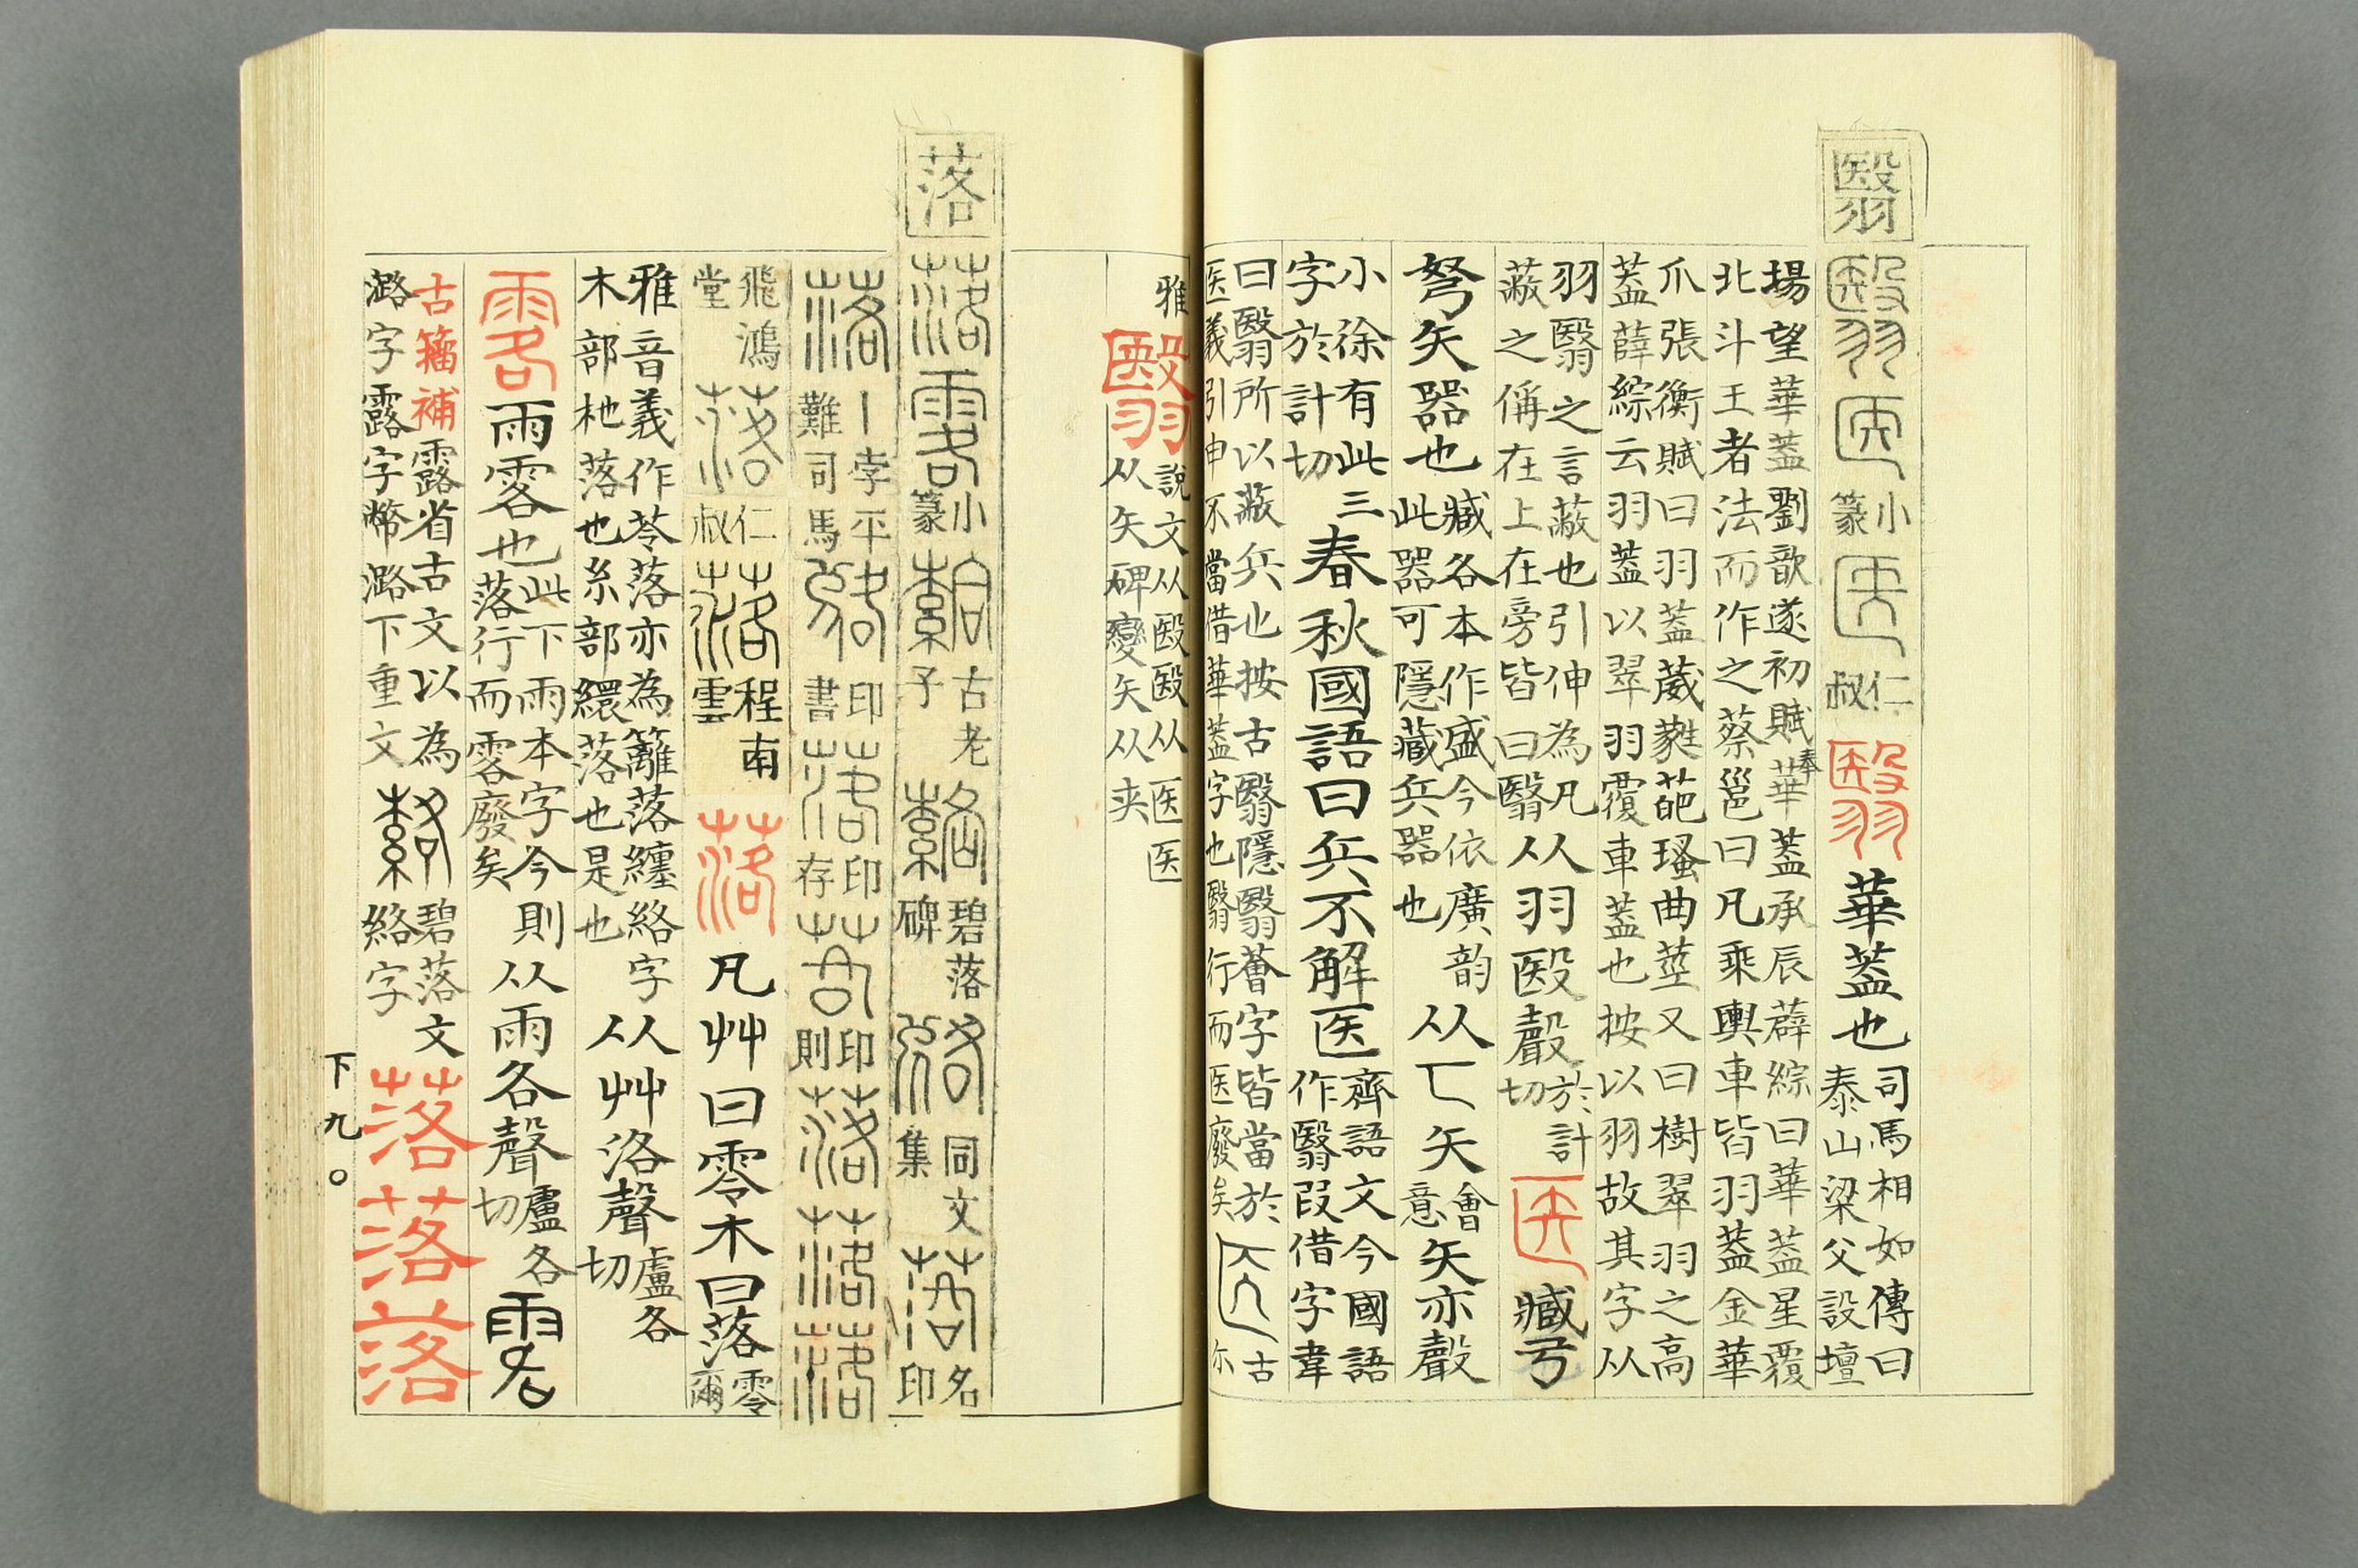 翳 翳 医 小篆 医 仁叔 翳 華蓋也 司馬相如傳曰
泰山梁父設壇
場望華蓋劉歆遂初賦奉華蓋承辰薜綜曰華蓋星覆
北斗王者法而作之蔡邕曰凡乘輿車皆羽蓋金華
爪張衡賦曰羽蓋葳蕤葩瑵曲莖又曰樹翠羽之高
蓋薛綜云羽蓋以翠羽覆車蓋也按以羽故其字从
羽翳之言蔽也引伸為凡
蔽之偁在上在旁皆曰翳
从羽殹聲 於計切 医 臧弓
弩矢器也 臧各本作盛今依廣韵
此器可隱藏兵器也
从匸矢 會意 矢亦聲
小徐有此三
字於計切
春秋國語曰兵不解医 齊語文今國語
作翳叚借字韋
曰翳所以蔽兵也按古翳隱翳薈字皆當於
医義引申不當借華蓋字也翳行而医廢矣
医 古尒
雅 翳 說文从殹殹从医医
从矢碑變矢从夹
落 落 零 小篆 古老子 碧落碑 同文集 落 名印
落 李平 難司馬 印書 落 印存 印則 落 落 落
飛鴻堂 落 仁叔 落 程南雲 落 凡艸曰零木曰落 零爾
雅音義作苓落亦為籬落纏絡字
木部杝落也糸部繯落也是也
从艸洛聲 盧各切
雩 雨零也 此下雨本字今則
落行而零廢矣
从雨各聲 盧各切 零
古籀補 露省古文以為
潞字露字幣潞下重文
絡 碧落文
絡字
落 落 落
下九〇